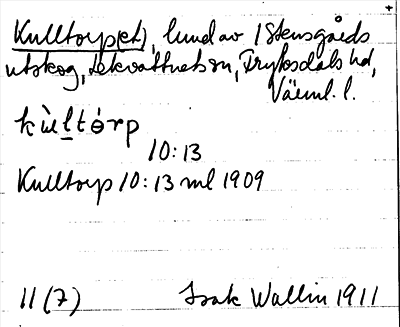 Kulltorp(et), lund av 1 Stensgårds
utskog, Lekvattnets sn, Fryksdals hd,
Värml. l.
kùeltórp
10:13
Kulltorp 10:13 ml 1909
11(7) Isak Wallin 1911